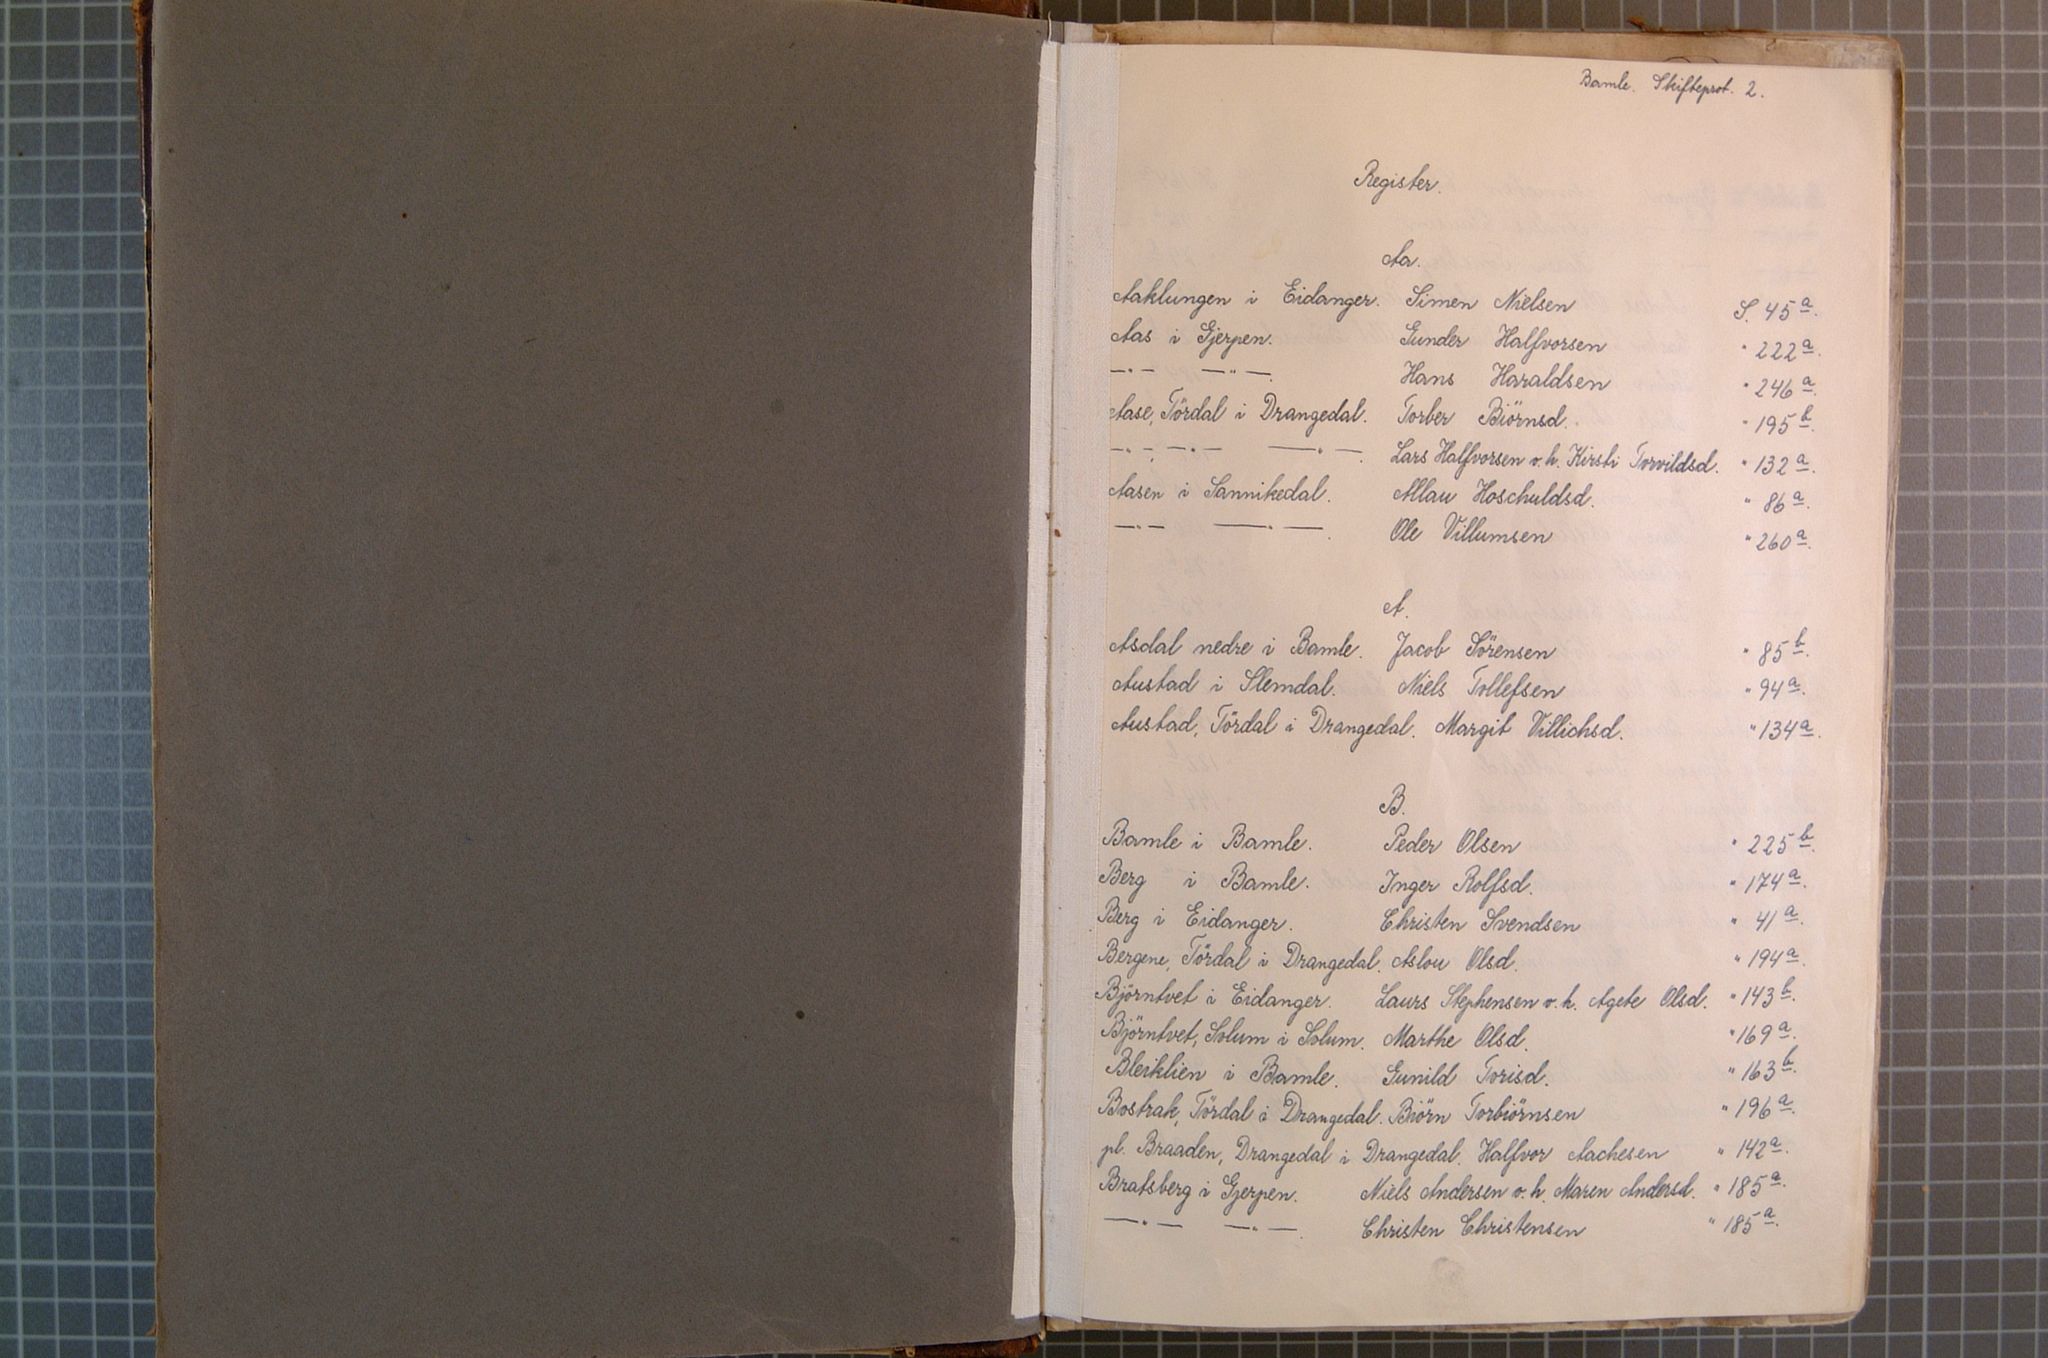 Bamle. Skifteprot. 2.
Register.
Aa.
Aaklungen i Eidanger. Simen Nielsen S. 45a.
Aas i Gjerpen. Gunder Halfvorsen " 222a.
—"— —"—. Hans Haraldsen " 246a.
Aase, Tördal i Drangedal. Torber Biörnsd. " 195b.
—"—, —"— —"—. Lars Halfvorsen o.h. Kirsti Torvildsd. " 132a.
Aasen i Sannikedal. Allau Hoschuldsd. " 86a.
—"— —"—. Ole Villumsen " 260a.
A.
Asdal nedre i Bamle. Jacob Sörensen " 85b.
Austad i Slemdal. Niels Tollefsen " 94a.
Austad, Tördal i Drangedal. Margit Villichsd. " 134a.
B.
Bamle i Bamle. Peder Olsen " 225b.
Berg i Bamle. Inger Rolfsd. " 174a.
Berg i Eidanger. Christen Svendsen " 41a.
Bergene, Tördal i Drangedal. Aslou Olsd. " 194a.
Björntvet i Eidanger. Laurs Stephensen o.h. Agete Olsd. " 143b.
Björntvet, Solum i Solum. Marthe Olsd. " 169a.
Bleiklien i Bamle. Gunild Torisd. " 163b.
Bostrak, Tördal i Drangedal. Biörn Torbiörnsen " 196a.
pl. Braaden, Drangedal i Drangedal. Halfvor Aachesen " 142a.
Bratsberg i Gjerpen. Niels Andersen o.h. Maren Andersd. " 185a.
—"— —"—. Christen Christensen " 185a.